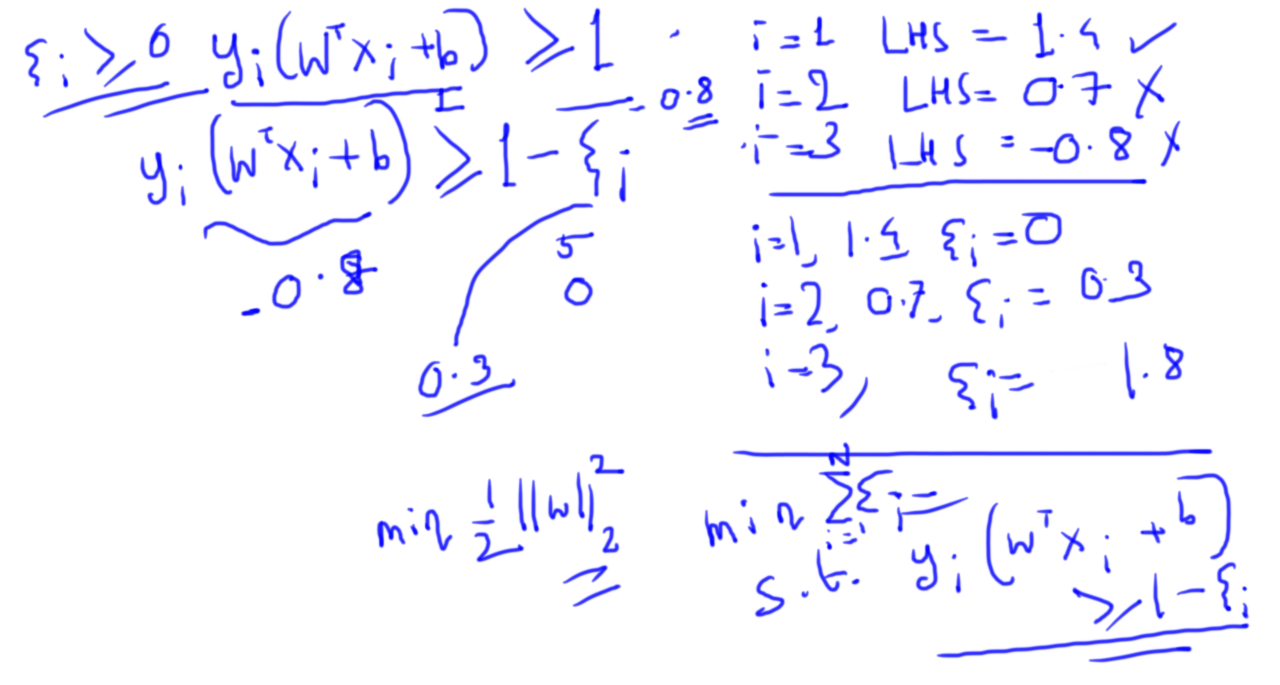 ξᵢ ≥ 0 yᵢ(wᵀxᵢ+b) ≥ 1
yᵢ(wᵀxᵢ+b) ≥ 1 - ξᵢ
-0.8
-0.8
5
0
0.3
i=1 LHS = 1.4 ✓
i=2 LHS = 0.7 X
i=3 LHS = -0.8 X
i=1, 1.4 ξᵢ=0
i=2, 0.7, ξᵢ = 0.3
i=3, ξᵢ= 1.8
min ½ ||w||₂²
min Σᵢ₌₁ᴺ ξᵢ
s.t. yᵢ(wᵀxᵢ + b)
≥ 1 - ξᵢ